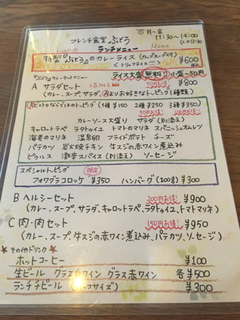 フレンチ食堂 ぶどう
ランチメニュー
11:30~14:00
特製 ぶどうのカレーライス
¥600
ライス大盛無料!!
A サラダセット
¥800
(カレー、スープ、サラダ、
1種 ¥150 2種 ¥250 3種 ¥350
カレーソース大盛り サラダ
キャロットラペ ラタトゥイユ トマトマリネ スパニッシュオムレツ
海老のマリネ 温泉卵 フライドポテト チーズ
パテカツ 炭火焼チキン 牛スジの赤ワイン煮込み
ピクルス 激辛スパイス ソーセージ
スペシャルトッピング 限定
フォワグラコロッケ ¥350 ハンバーグ(200g) ¥300
B ヘルシーセット ¥900
(カレー、スープ、サラダ、キャロットラペ、ラタトゥイユ、トマトマリネ)
C 肉・肉セット ¥950
(カレー、スープ、牛スジの赤ワイン煮込み、パテカツ、ソーセージ)
★その他ドリンク
ホットコーヒー ¥100
生ビール グラス白ワイン グラス赤ワイン 各¥500
ランチビール ¥300